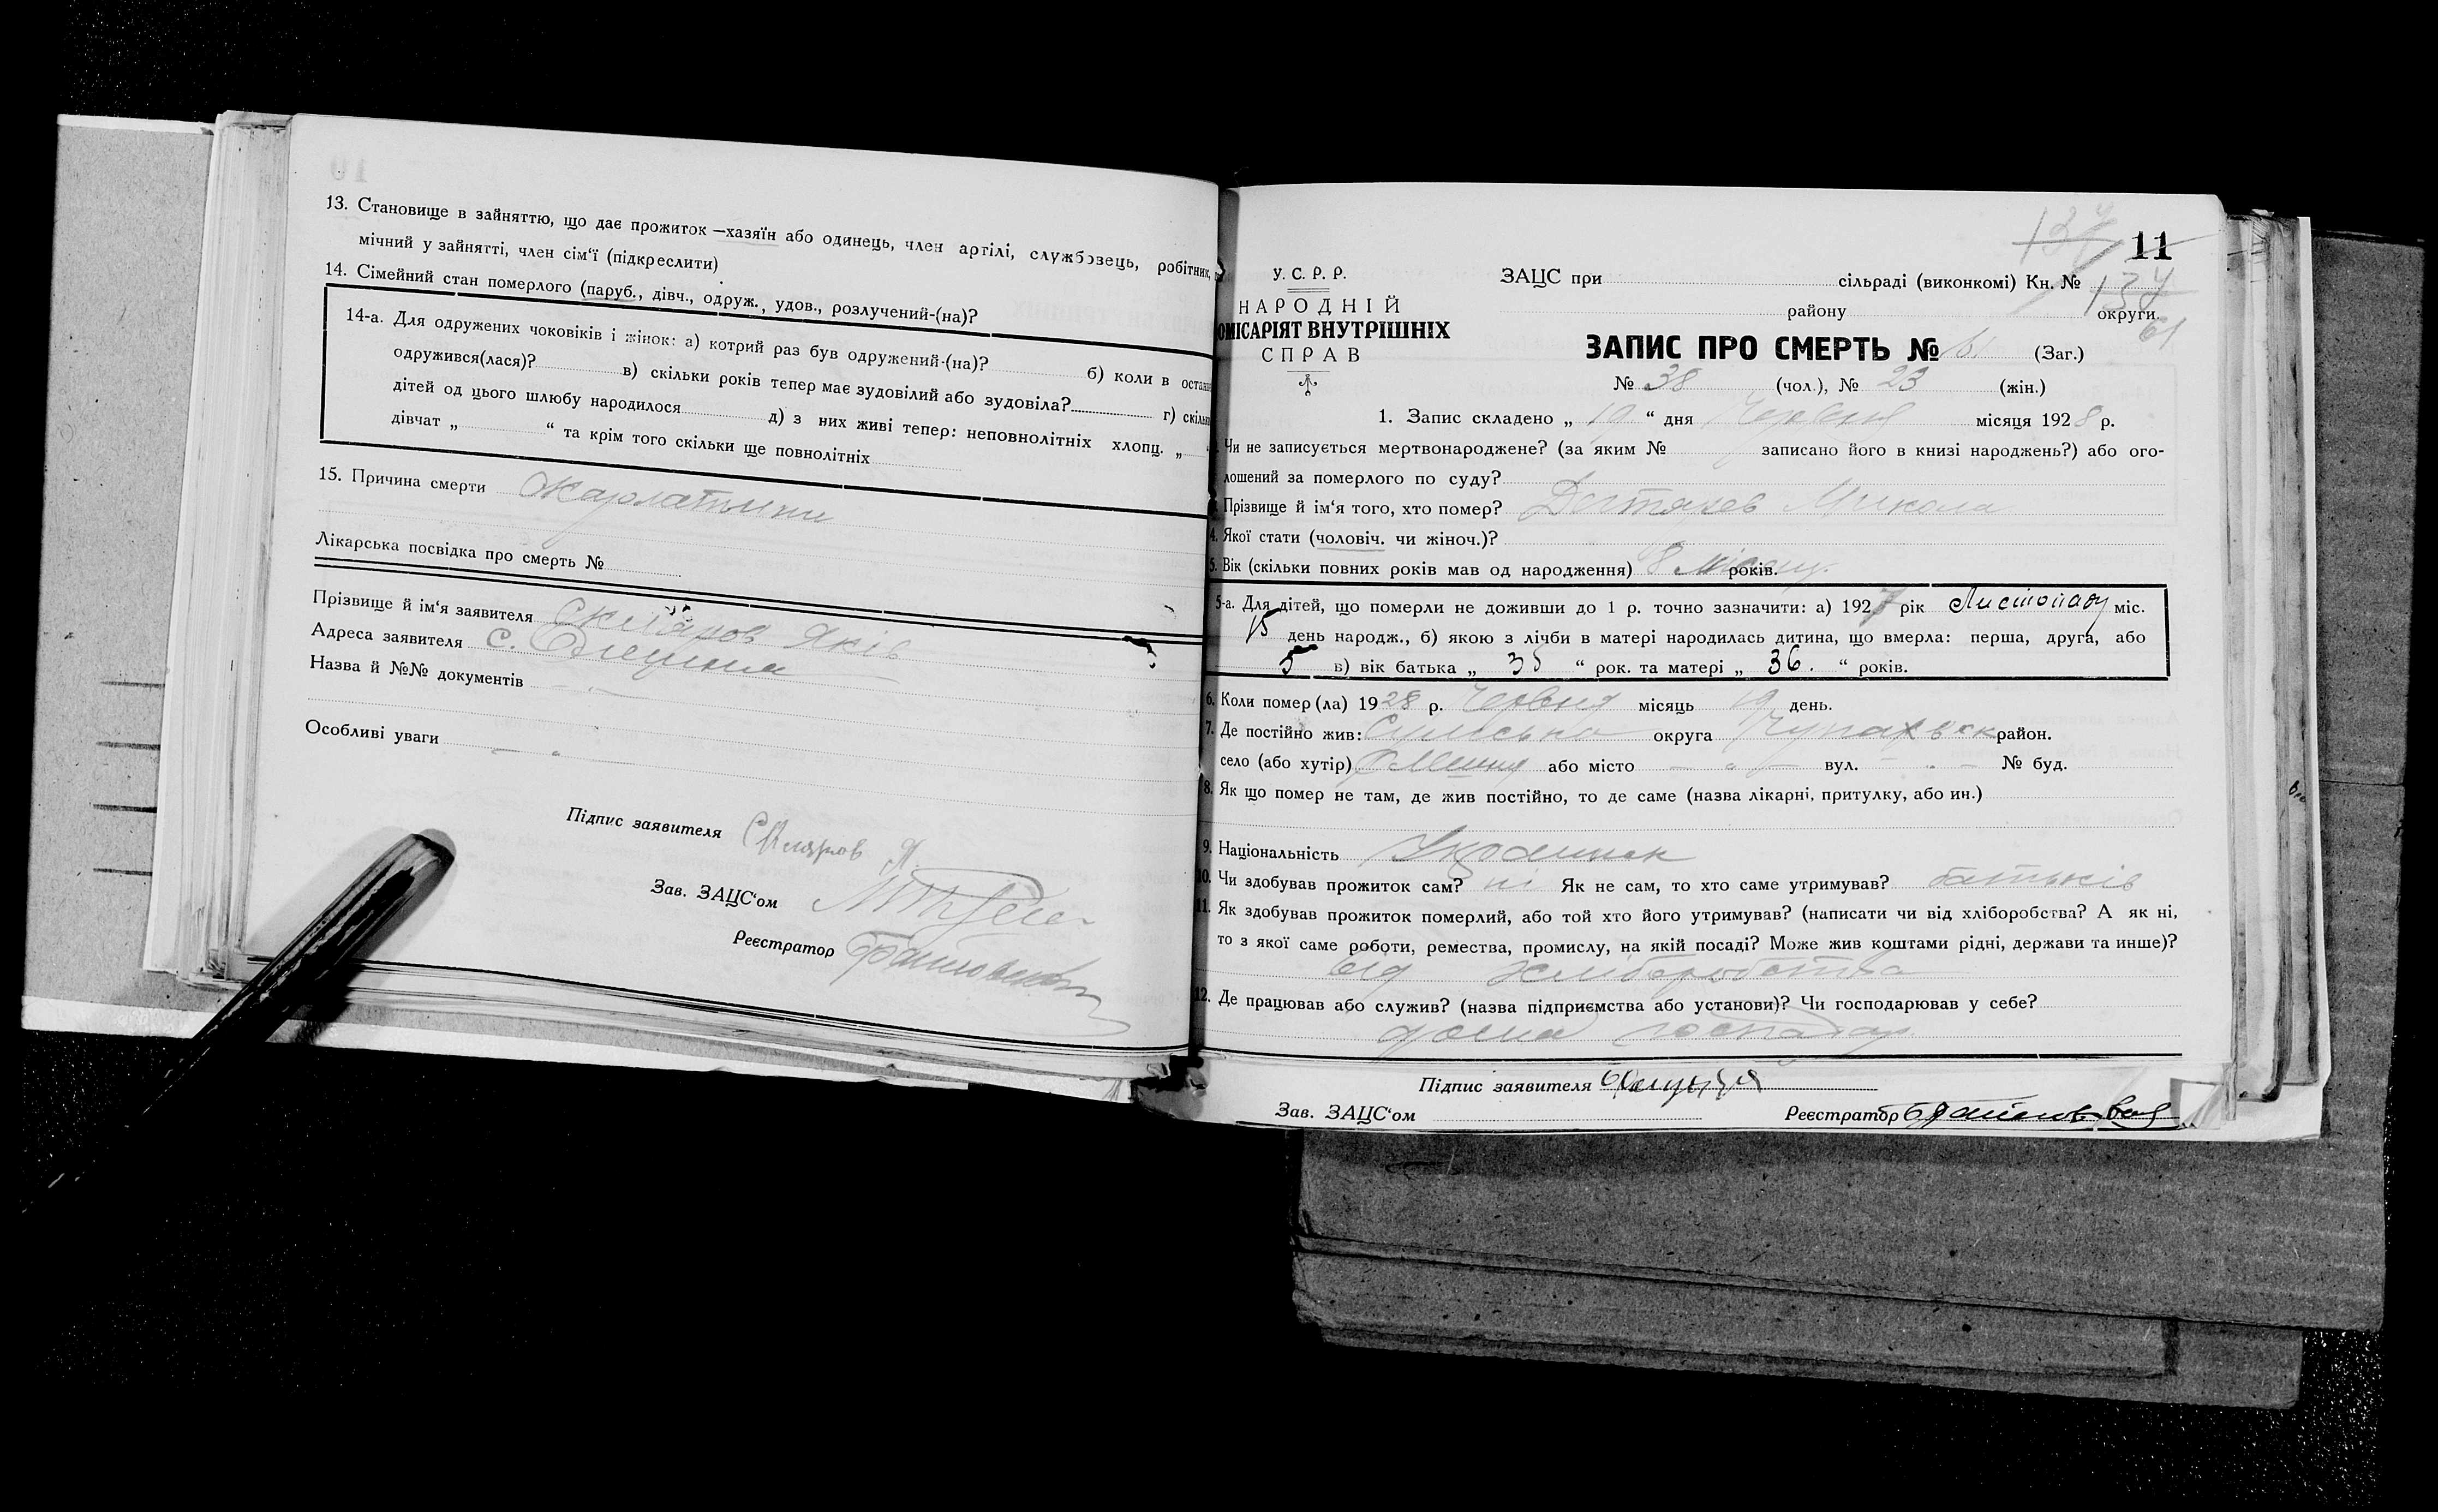 13. Становище в зайняттю, що дає прожиток —хазяїн або одинець, член артілі, службовець, робітник,
мічний у зайнятті, член сім‘ї (підкреслити)
14. Сімейний стан померлого (паруб., дівч., одруж., удов., розлучений-(на)?
14-а. Для одружених чоковіків і жінок: а) котрий раз був одружений-(на)? б) коли в останн
одружився(лася)? в) скільки років тепер має зудовілий або зудовіла? г) скільк
дітей од цього шлюбу народилося д) з них живі тепер: неповнолітніх хлопц. „
дівчат „ “ та крім того скільки ще повнолітніх
15. Причина смерти
Лікарська посвідка про смерть №
Прізвище й ім‘я заявителя Скляров Яків
Адреса заявителя с.
Назва й №№ документів
Особливі уваги
Підпис заявителя Скляров Я.
Зав. ЗАЦС‘ом
Реєстратор
11
134
У. С. Р. Р.
НАРОДНІЙ
ОМІСАРІЯТ ВНУТРІШНІХ
СПРАВ
ЗАЦС при сільраді (виконкомі) Кн. №
134
району округи.
61
ЗАПИС ПРО СМЕРТЬ № 61 (Заг.)
№ 38 (чол.), № 23 (жін.)
1. Запис складено „ 19 “ дня Червня місяця 1928 р.
Чи не записується мертвонароджене? (за яким № записано його в книзі народжень?) або ого-
лошений за померлого по суду?
Прізвище й ім‘я того, хто помер? Дегтярев Микола
4. Якої стати (чоловіч. чи жіноч.)?
5. Вік (скільки повних років мав од народження) 8 місяц. років.
5-а. Для дітей, що померли не доживши до 1 р. точно зазначити: а) 1927 рік Листопаду міс.
15 день народж., б) якою з лічби в матері народилась дитина, що вмерла: перша, друга, або
5 в) вік батька „ 35 “ рок. та матері „ 36. “ років.
6. Коли помер(ла) 1928 р. Червня місяць 19 день.
7. Де постійно жив: Сумська округа Чупахівск район.
село (або хутір) Олешня або місто вул. № буд.
8. Як що помер не там, де жив постійно, то де саме (назва лікарні, притулку, або ин.)
9. Національність Украинец
10. Чи здобував прожиток сам? ні Як не сам, то хто саме утримував? батьків
11. Як здобував прожиток померлий, або той хто його утримував? (написати чи від хліборобства? А як ні,
то з якої саме роботи, ремества, промислу, на якій посаді? Може жив коштами рідні, держави та инше)?
від хліборобства
12. Де працював або служив? (назва підприємства або установи)? Чи господарював у себе?
дома господар
Підпис заявителя
Зав. ЗАЦС‘ом Реєстратор